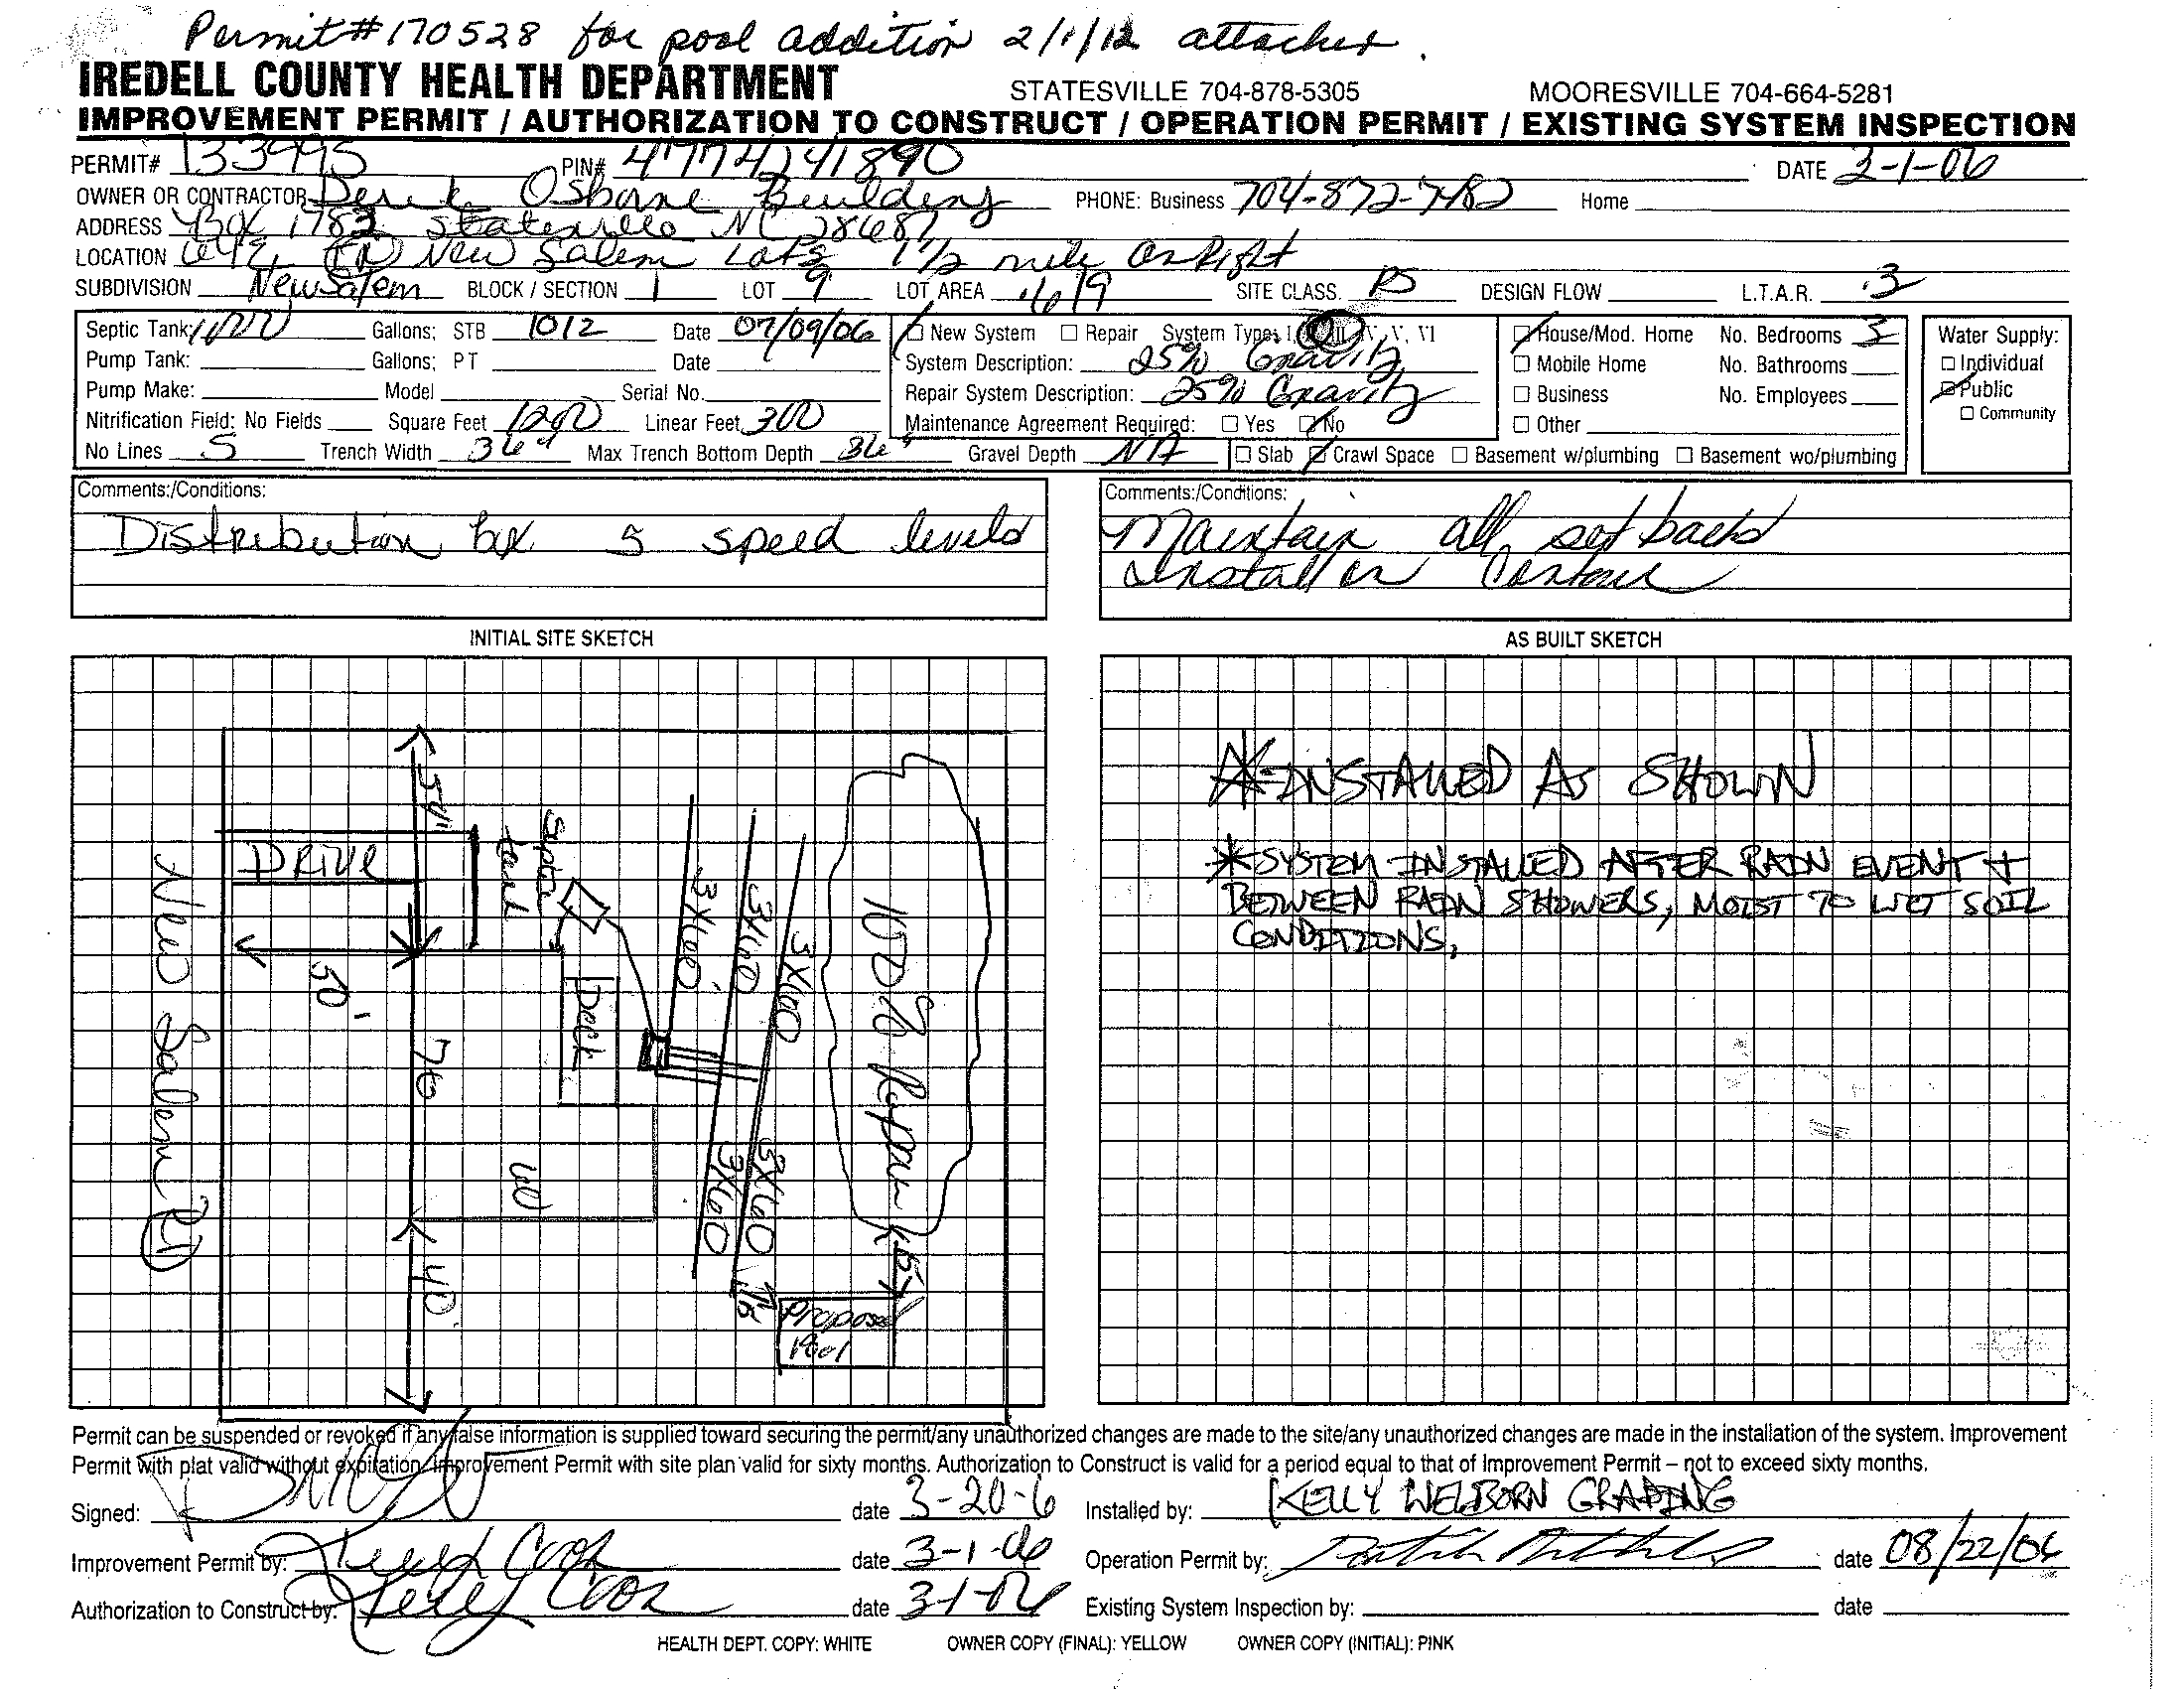 Permit# 170528 for pool addition 2/1/12 attached.
IREDELL COUNTY HEALTH DEPARTMENT STATESVILLE 704-878-5305 MOORESVILLE 704-664-5281
IMPROVEMENT PERMIT / AUTHORIZATION TO CONSTRUCT / OPERATION PERMIT / EXISTING SYSTEM INSPECTION
PERMIT# 133995 PIN# 4774241890 DATE 3-1-06
OWNER OR CONTRACTOR Derek Osborne Building PHONE: Business 704-872-7182 Home
ADDRESS Box 1783 Statesville NC 28687
LOCATION New Salem Lots 1 1/2 mile on Right
SUBDIVISION New Salem BLOCK / SECTION 1 LOT 9 LOT AREA .619 SITE CLASS. PS DESIGN FLOW L.T.A.R. .3
Septic Tank: 1000 Gallons; STB 1012 Date 07/09/06 New System Repair System Type: I, V, VI House/Mod. Home No. Bedrooms 3 Water Supply:
Pump Tank: Gallons; PT Date System Description: 25% Gravity Mobile Home No. Bathrooms Individual
Pump Make: Model Serial No. Repair System Description: 25% Gravity Business No. Employees Public
Nitrification Field: No Fields Square Feet 1200 Linear Feet 300 Maintenance Agreement Required: Yes No Other Community
No Lines 5 Trench Width 36" Max Trench Bottom Depth 36" Gravel Depth NA Slab Crawl Space Basement w/plumbing Basement wo/plumbing
Comments:/Conditions: Comments:/Conditions:
Distribution box 5 speed levels Maintain all set backs
Install on Contour
INITIAL SITE SKETCH AS BUILT SKETCH
*INSTALLED AS SHOWN
*SYSTEM INSTALLED AFTER RAIN EVENT +
BETWEEN RAIN SHOWERS, MOIST TO WET SOIL
CONDITIONS,
New Salem Rd
DRIVE
54'
50'
76
40'
Septic
tank
Deck
60
3X60
3X60
3X60
3X60
3X60
100% Repair
15'
Proposed
Pool
Permit can be suspended or revoked if any false information is supplied toward securing the permit/any unauthorized changes are made to the site/any unauthorized changes are made in the installation of the system. Improvement
Permit with plat valid without expiration. Improvement Permit with site plan valid for sixty months. Authorization to Construct is valid for a period equal to that of Improvement Permit – not to exceed sixty months.
Signed: date 3-20-6 Installed by: KELLY WELBORN GRADING
Improvement Permit by: Cook date 3-1-06 Operation Permit by: date 08/22/06
Authorization to Construct by: Cook date 3-1-06 Existing System Inspection by: date
HEALTH DEPT. COPY: WHITE OWNER COPY (FINAL): YELLOW OWNER COPY (INITIAL): PINK